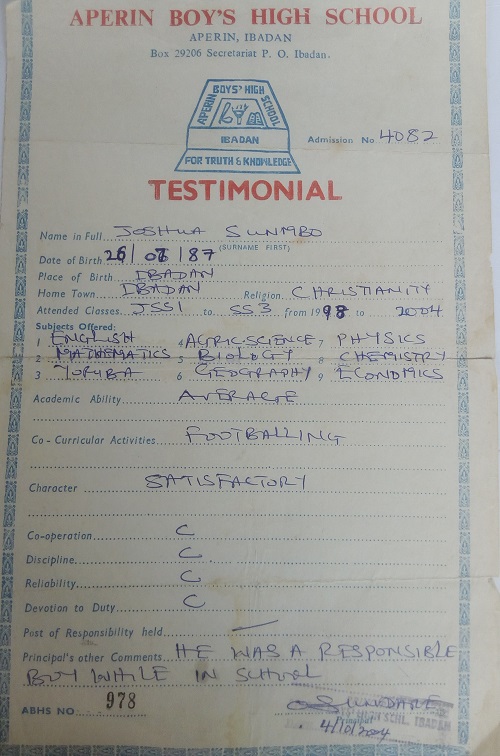 APERIN BOY'S HIGH SCHOOL
APERIN, IBADAN
Box 29206 Secretariat P. O. Ibadan.
APERIN BOYS' HIGH SCHOOL
IBADAN
FOR TRUTH & KNOWLEDGE
Admission No 4082
TESTIMONIAL
Name in Full JOSHUA SUNMBO
(SURNAME FIRST)
Date of Birth 26/07/87
Place of Birth IBADAN
Home Town IBADAN Religion CHRISTIANITY
Attended Classes JSS1 to SS3 from 1998 to 2004
Subjects Offered:
1 ENGLISH 4 AGRIC SCIENCE 7 PHYSICS
2 MATHEMATICS 5 BIOLOGY 8 CHEMISTRY
3 YORUBA 6 GEOGRAPHY 9 ECONOMICS
Academic Ability AVERAGE
Co-Curricular Activities FOOTBALLING
Character SATISFACTORY
Co-operation C
Discipline C
Reliability C
Devotion to Duty C
Post of Responsibility held —
Principal's other Comments HE WAS A RESPONSIBLE
BOY WHILE IN SCHOOL
ABHS NO 978
HIGH SCHL. IBADAN
4/10/2004